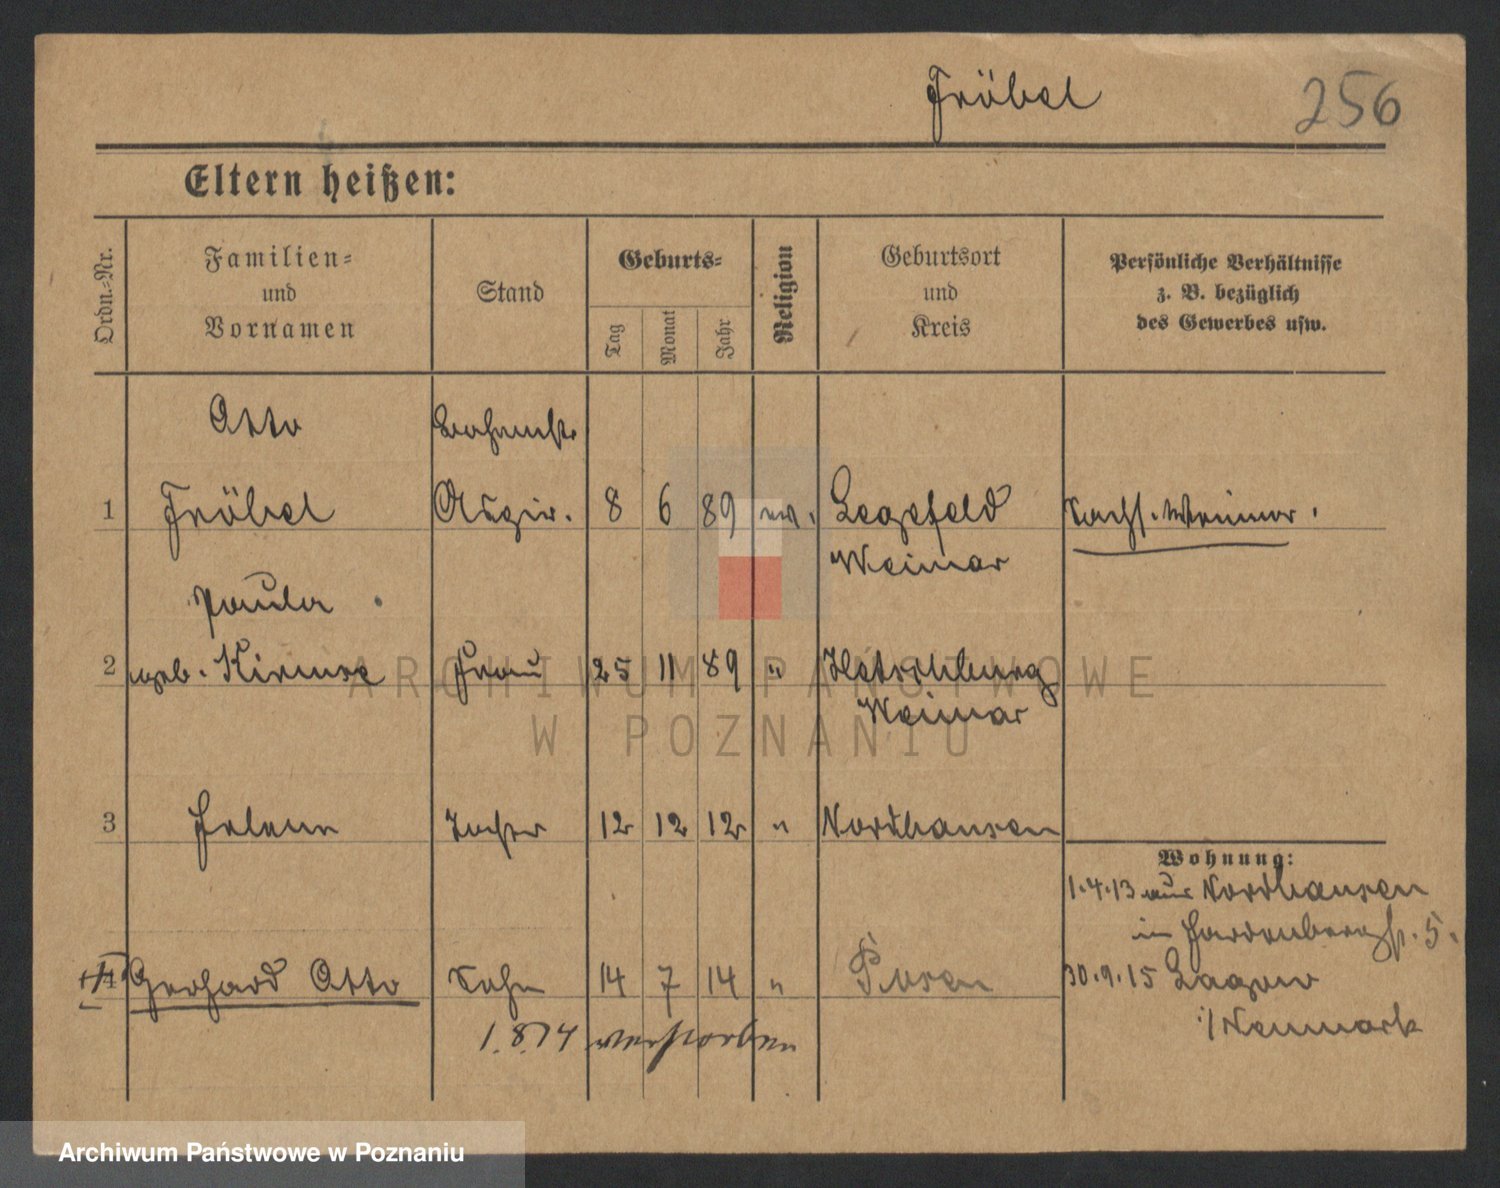 Fröbel
256
Eltern heißen:
Ordn.-Nr.
Familien- und Vornamen
Stand
Geburts-
Tag
Monat
Jahr
Religion
Geburtsort und Kreis
Persönliche Verhältnisse
z. B. bezüglich
des Gewerbes usw.
Otto
1 Fröbel 8 6 89 ev. Legefeld Sachs. Weimar.
Weimar
Paula
2 geb. Kirmse Frau 25 11 89 " Hetschburg
Weimar
3 Helene Tochter 12 12 12 " Nordhausen
Wohnung:
1.4.13 aus Nordhausen
in Hardenbergstr. 5.
4 Gerhard Otto Sohn 14 7 14 " Posen
30.9.15 Lagow
i/Neumark
1.8.14 verstorben
ARCHIWUM PAŃSTWOWE
W POZNANIU
Archiwum Państwowe w Poznaniu